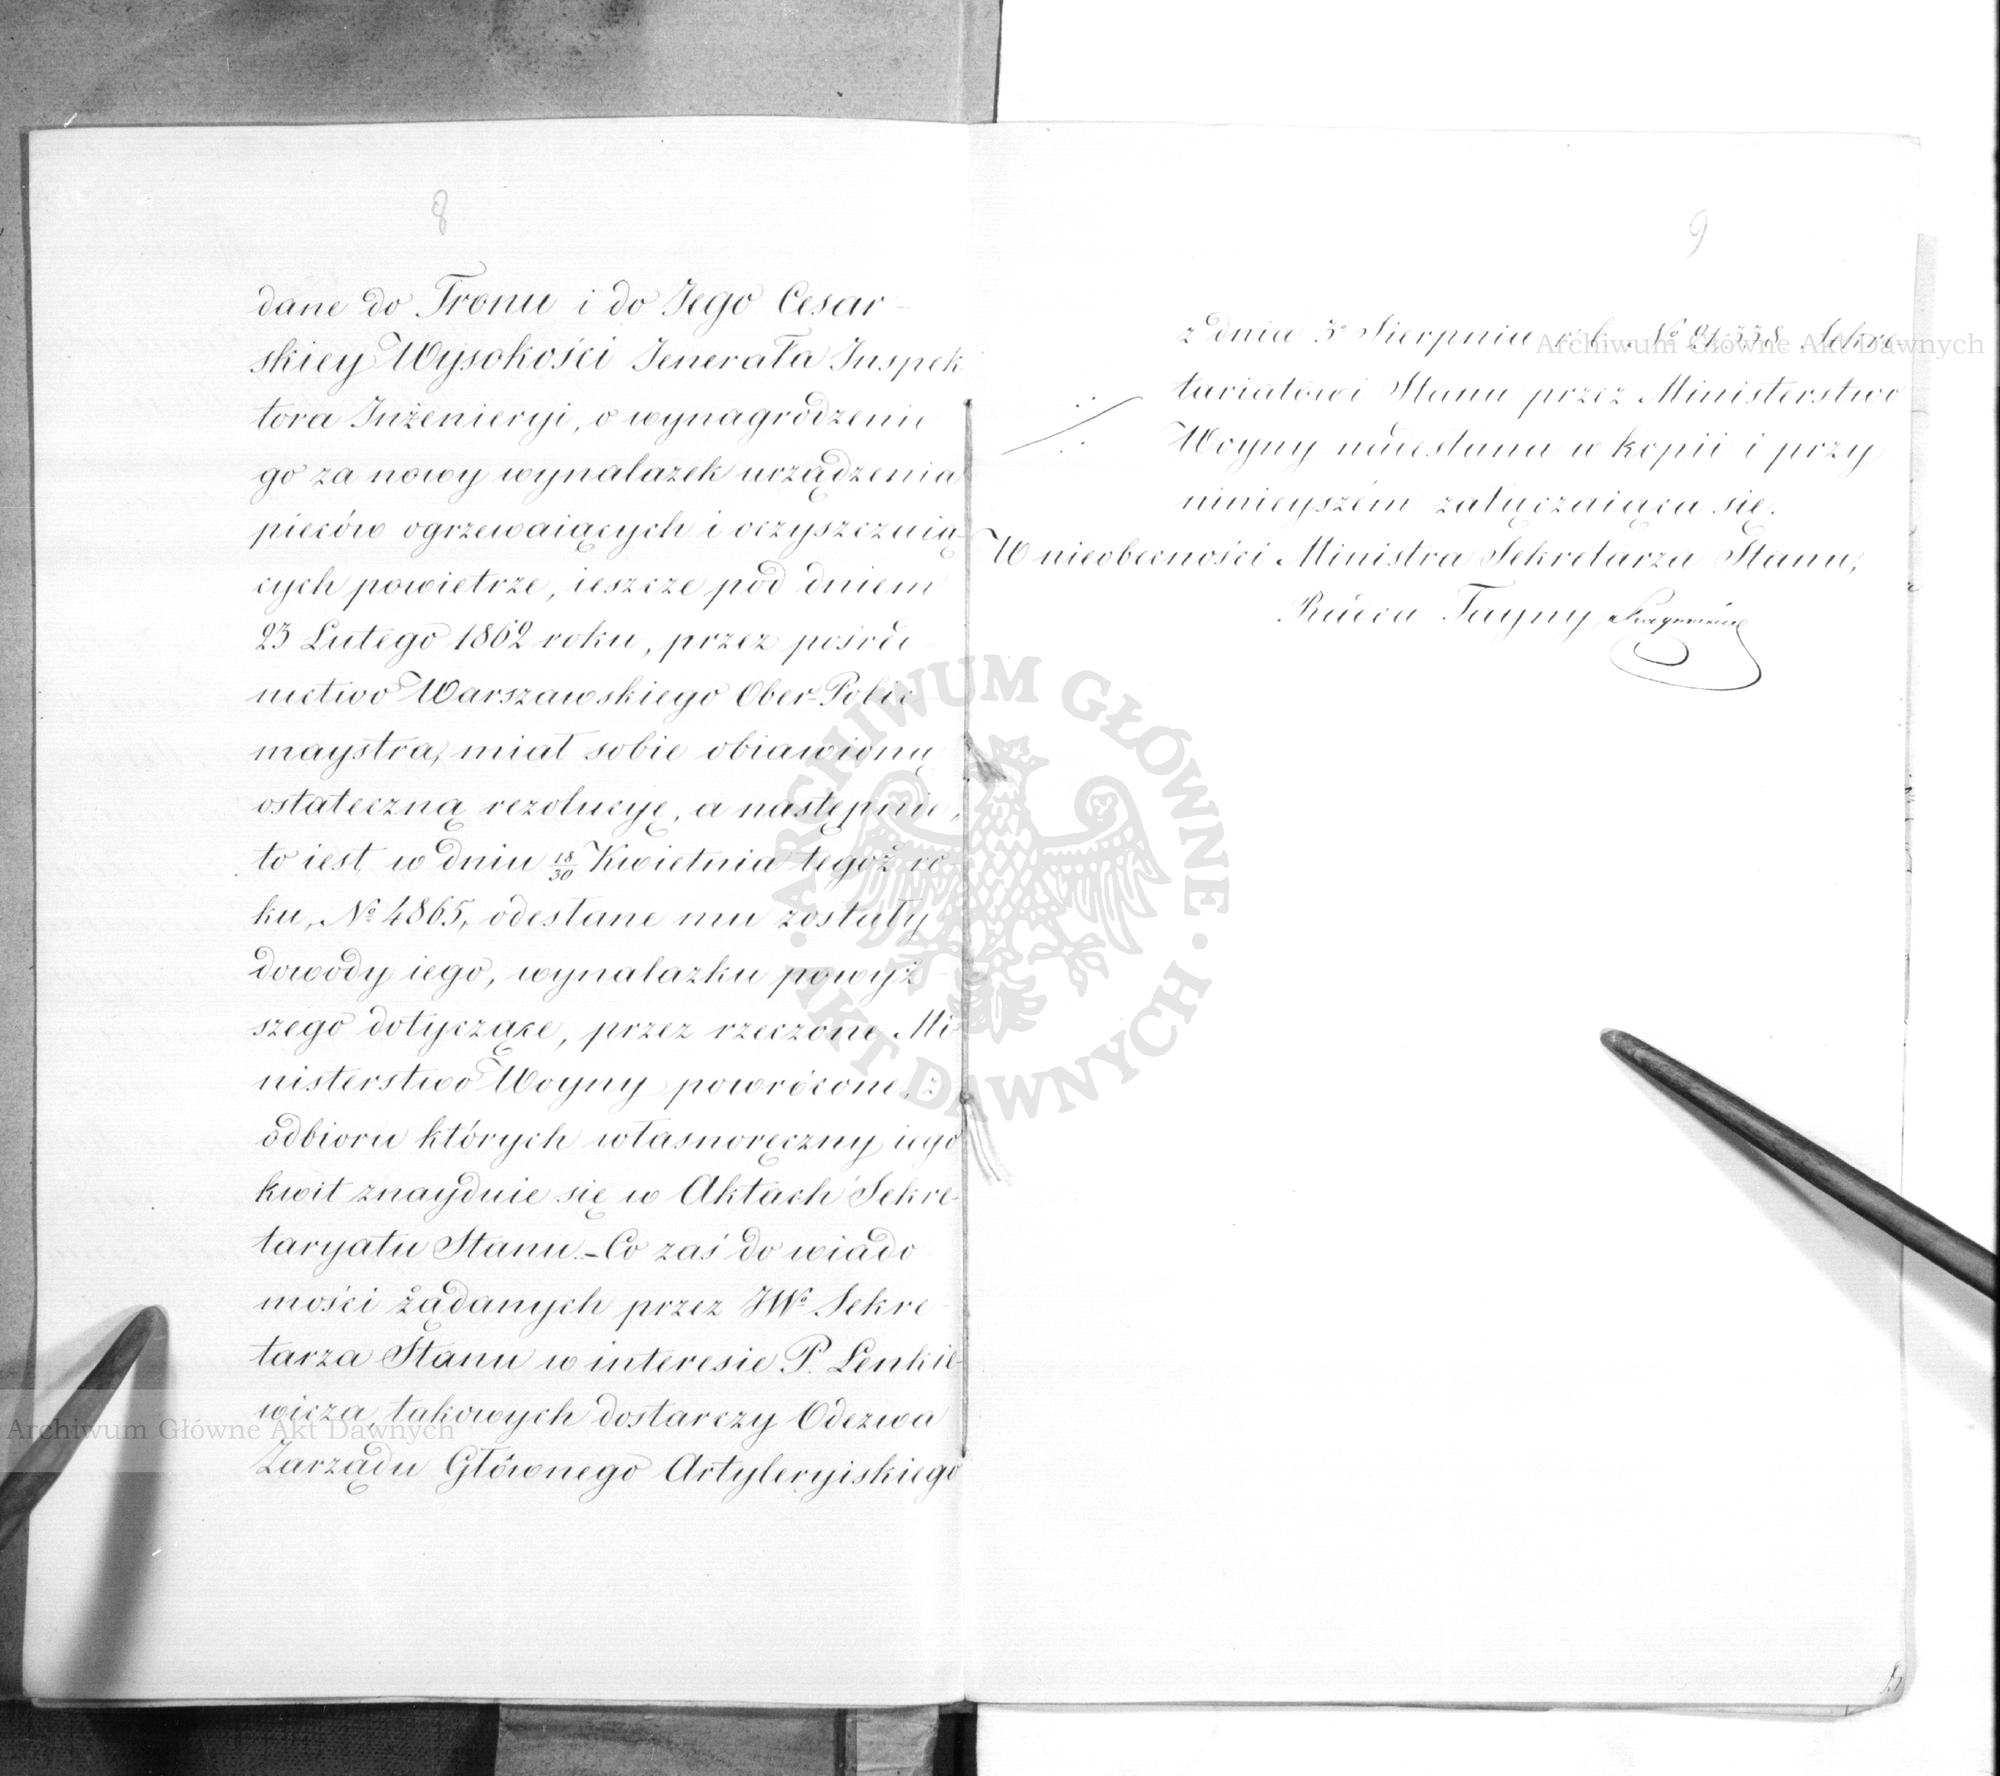 8
dane do Tronu i do Jego Cesar-
skiey Wysokości Jenerała Inspek-
tora Inżenieryi, o wynagrodzenie
go za nowy wynalazek urządzenia
pieców ogrzewaiących i oczyszczaią-
cych powietrze, ieszcze pod dniem
23 Lutego 1862 roku, przez pośred-
nictwo Warszawskiego Ober-Polic-
maystra, miał sobie obiawioną
ostateczną rezolucyę, a następnie,
to iest w dniu 18/30 Kwietnia tegoż ro-
ku, № 4865, odesłane mu zostały
dowody iego, wynalazku powyż-
szego dotyczące, przez rzeczone Mi-
nisterstwo Woyny powrócone, z
odbioru których własnoręczny iego
kwit znayduie się w Aktach Sekre-
taryatu Stanu. - Co zaś do wiado-
mości żądanych przez JWo Sekre-
tarza Stanu w interesie P. Lenkie-
wicza, takowych dostarczy Odezwa
Zarządu Głównego Artyleryiskiego
9
z dnia 3o Sierpnia r. b. № 21.338. Sekre-
tariatowi Stanu przez Ministerstwo
Woyny nadesłana w kopii i przy
ninieyszém załączaiąca się.
W nieobecności Ministra Sekretarza Stanu,
Radca Tayny
ARCHIWUM GŁÓWNE AKT DAWNYCH
Archiwum Główne Akt Dawnych
Archiwum Główne Akt Dawnych